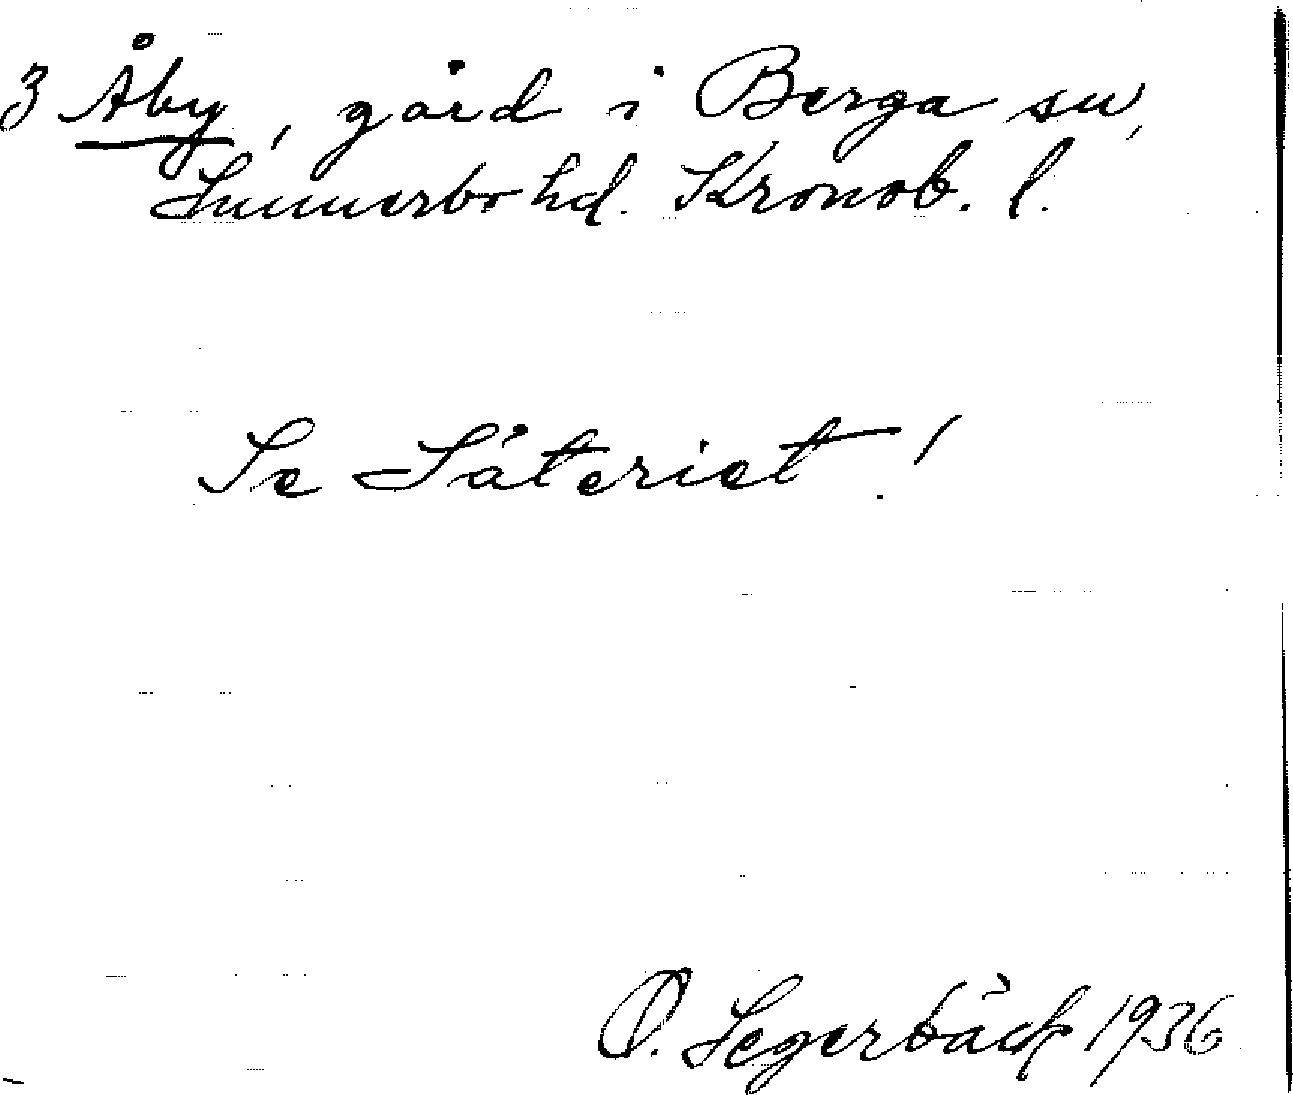 3 Åby, gård i Berga sn,
Sunnerbo hd. Kronob. l.
Se Säteriet!
O. Segerbäck 1936